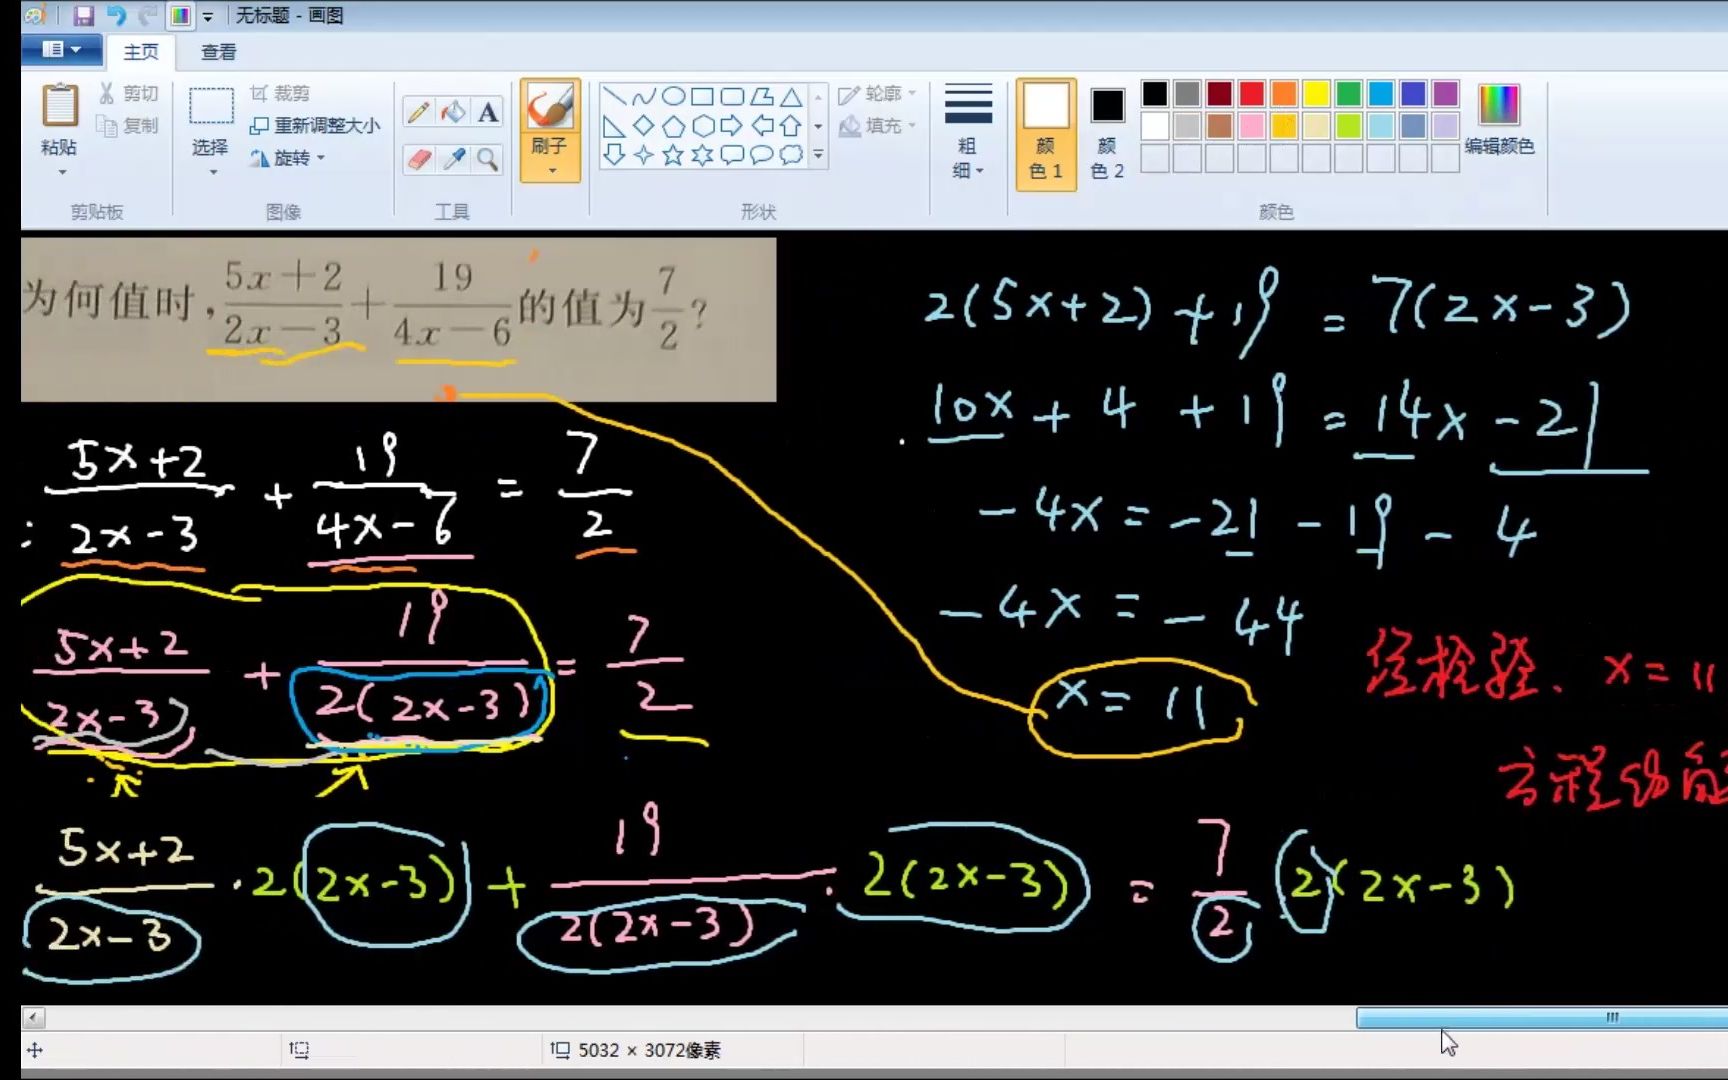 无标题 - 画图
主页 查看
粘贴
剪切
复制
剪贴板
选择
裁剪
重新调整大小
旋转
图像
A
工具
刷子
轮廓
填充
形状
粗细
颜色 1
颜色 2
编辑颜色
颜色
为何值时, (5x+2)/(2x-3) + 19/(4x-6) 的值为 7/2 ?
(5x+2)/(2x-3) + 19/(4x-6) = 7/2
(5x+2)/(2x-3) + 19/(2(2x-3)) = 7/2
(5x+2)/(2x-3) · 2(2x-3) + 19/(2(2x-3)) · 2(2x-3) = 7/2 2(2x-3)
2(5x+2) + 19 = 7(2x-3)
10x + 4 + 19 = 14x - 21
-4x = -21 - 19 - 4
-4x = -44
x = 11
经检验、x = 11
方程的解
5032 × 3072像素